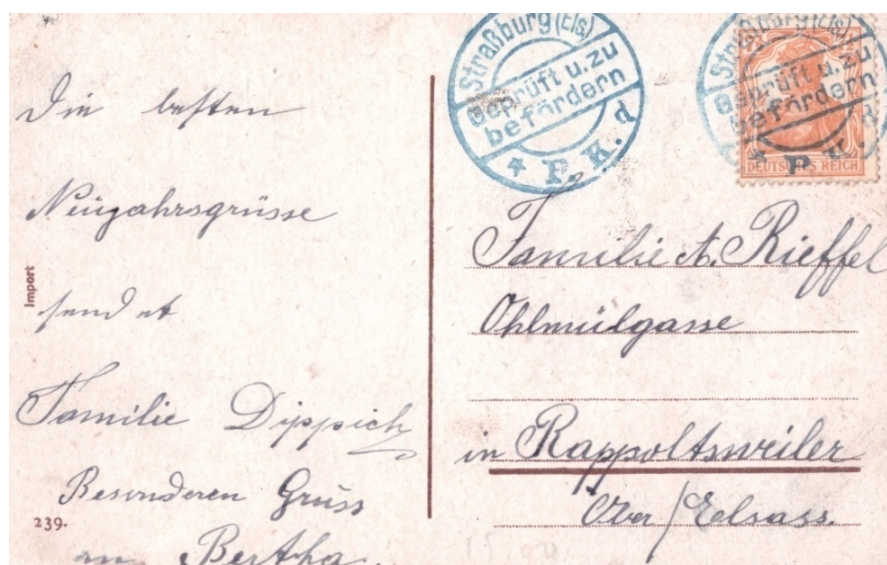 Die besten
Neujahrsgrüsse
sendet
Familie Dippich
Besonderen Gruss
an Bertha
Import
239.
Straßburg (Els)
Geprüft u. zu
befördern
* P. K. d
Straßburg (Els)
Geprüft u. zu
befördern
* P. K.
DEUTSCHES REICH
Familie A. Rieffel
Ohlmülgasse
in Rappoltsweiler
Ober/Eelsass.
15.00